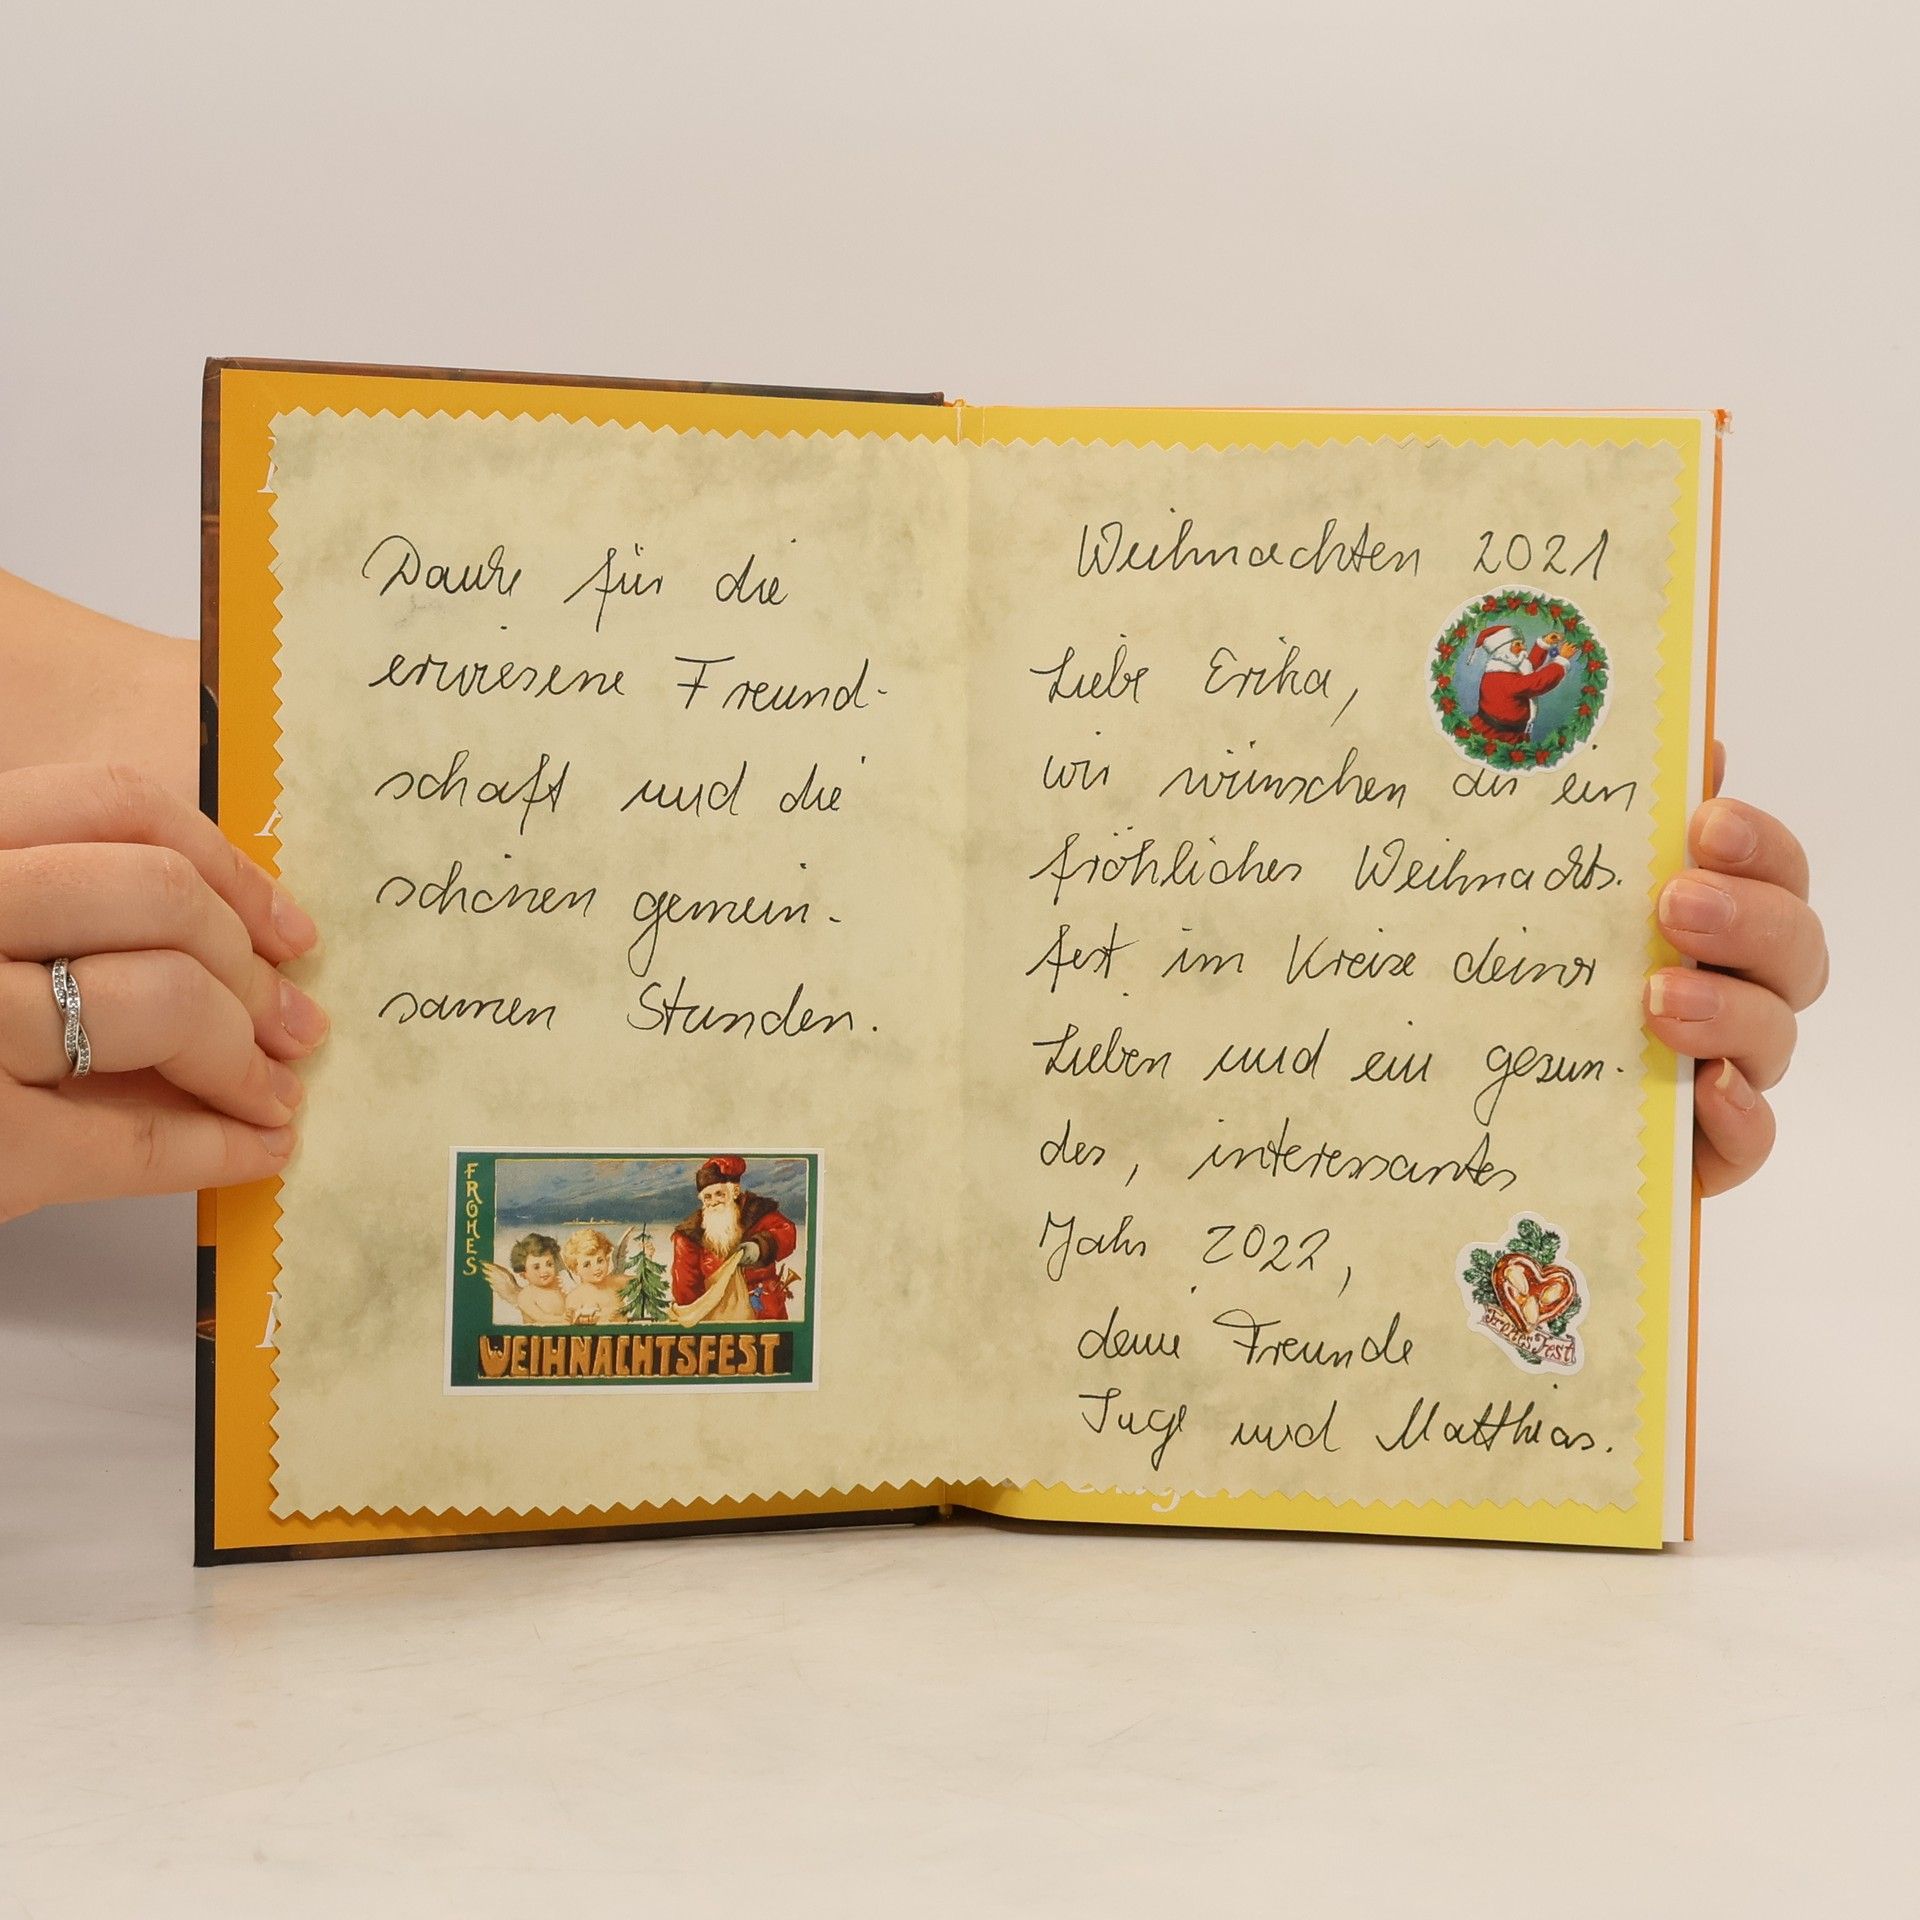 Danke für die
erwiesene Freund-
schaft und die
schönen gemein-
samen Stunden.
FROHES
WEIHNACHTSFEST
Weihnachten 2021
Liebe Erika,
wir wünschen dir ein
fröhliches Weihnachts-
fest im Kreise deiner
Lieben und ein gesun-
des, interessantes
Jahr 2022,
deine Freunde
Inge und Matthias.
Frohes Fest